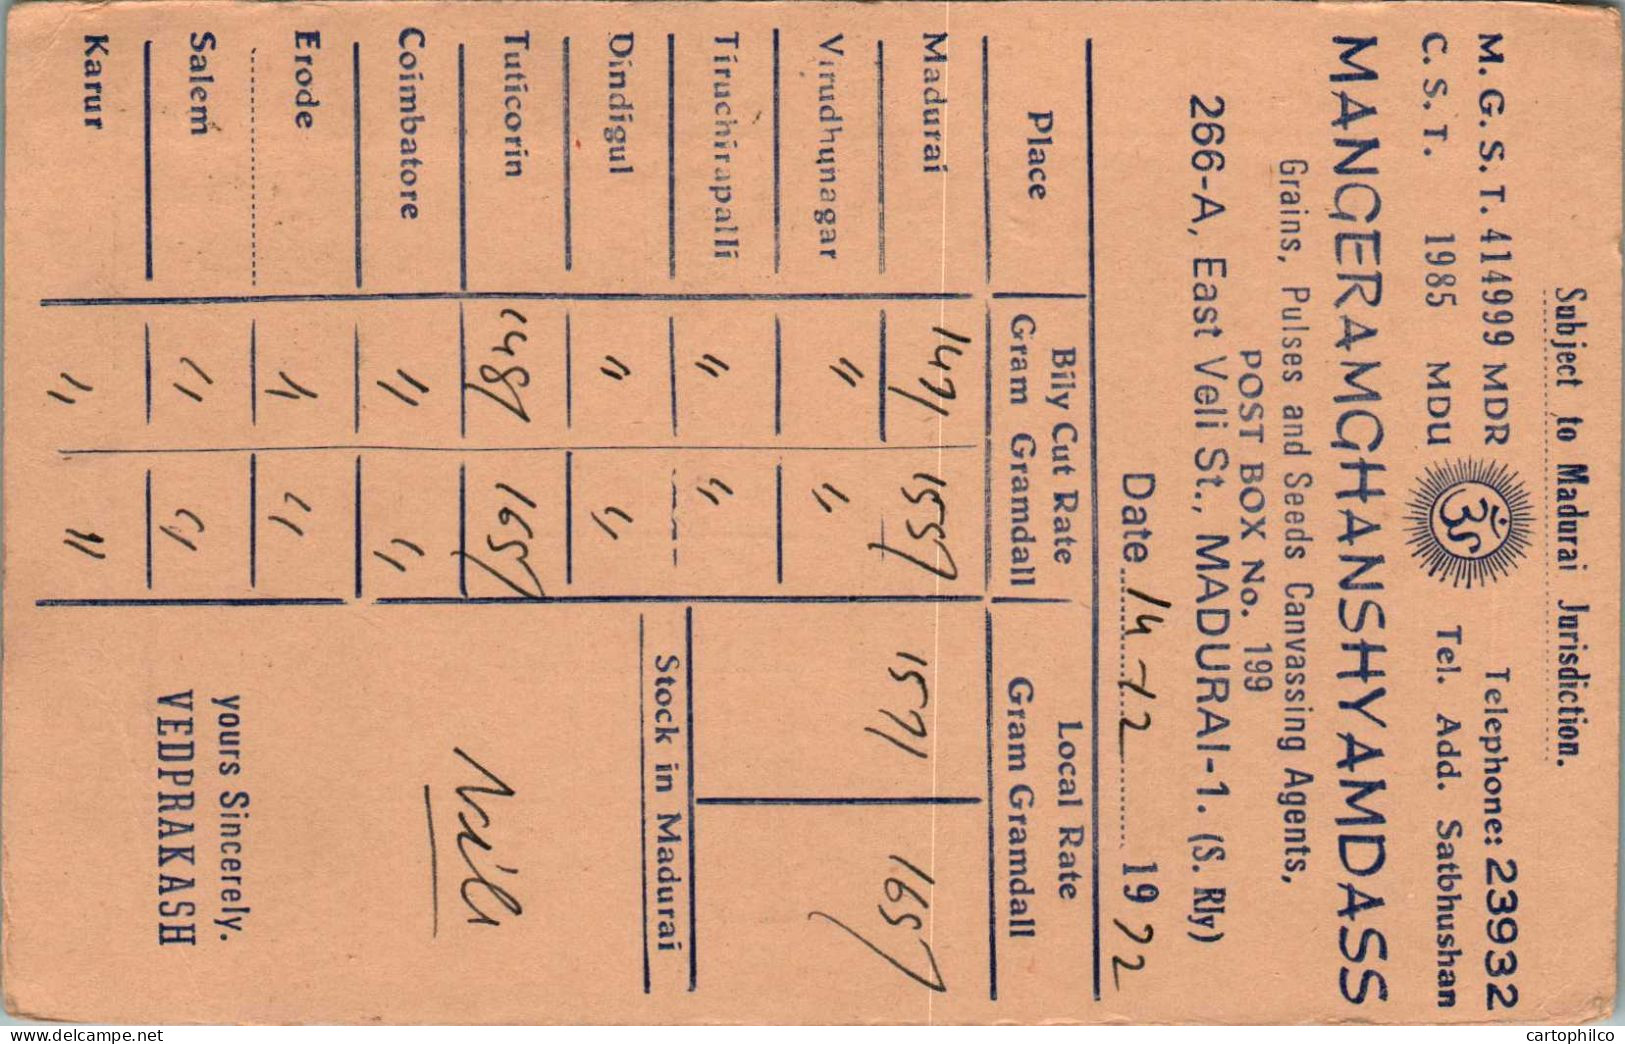 Subject to Madurai Jurisdiction.
M. G. S. T. 414999 MDR ॐ Telephone: 23932
C. S. T. 1985 MDU Tel. Add. Satbhushan
MANGERAMGHANSHYAMDASS
Grains, Pulses and Seeds Canvassing Agents,
POST BOX No. 199
266-A, East Veli St., MADURAI-1. (S. Rly)
Date 14-12 1972
Place Bily Cut Rate Local Rate
Gram Gramdall Gram Gramdall
Madurai 147/ 155/ 157/ 165/
Virudhunagar " "
Tiruchirapalli " "
Dindigul " "
Stock in Madurai
Tuticorin 148/ 165/
Coimbatore " "
Erode " "
Salem " "
Karur " "
yours Sincerely.
VEDPRAKASH
cartophilco